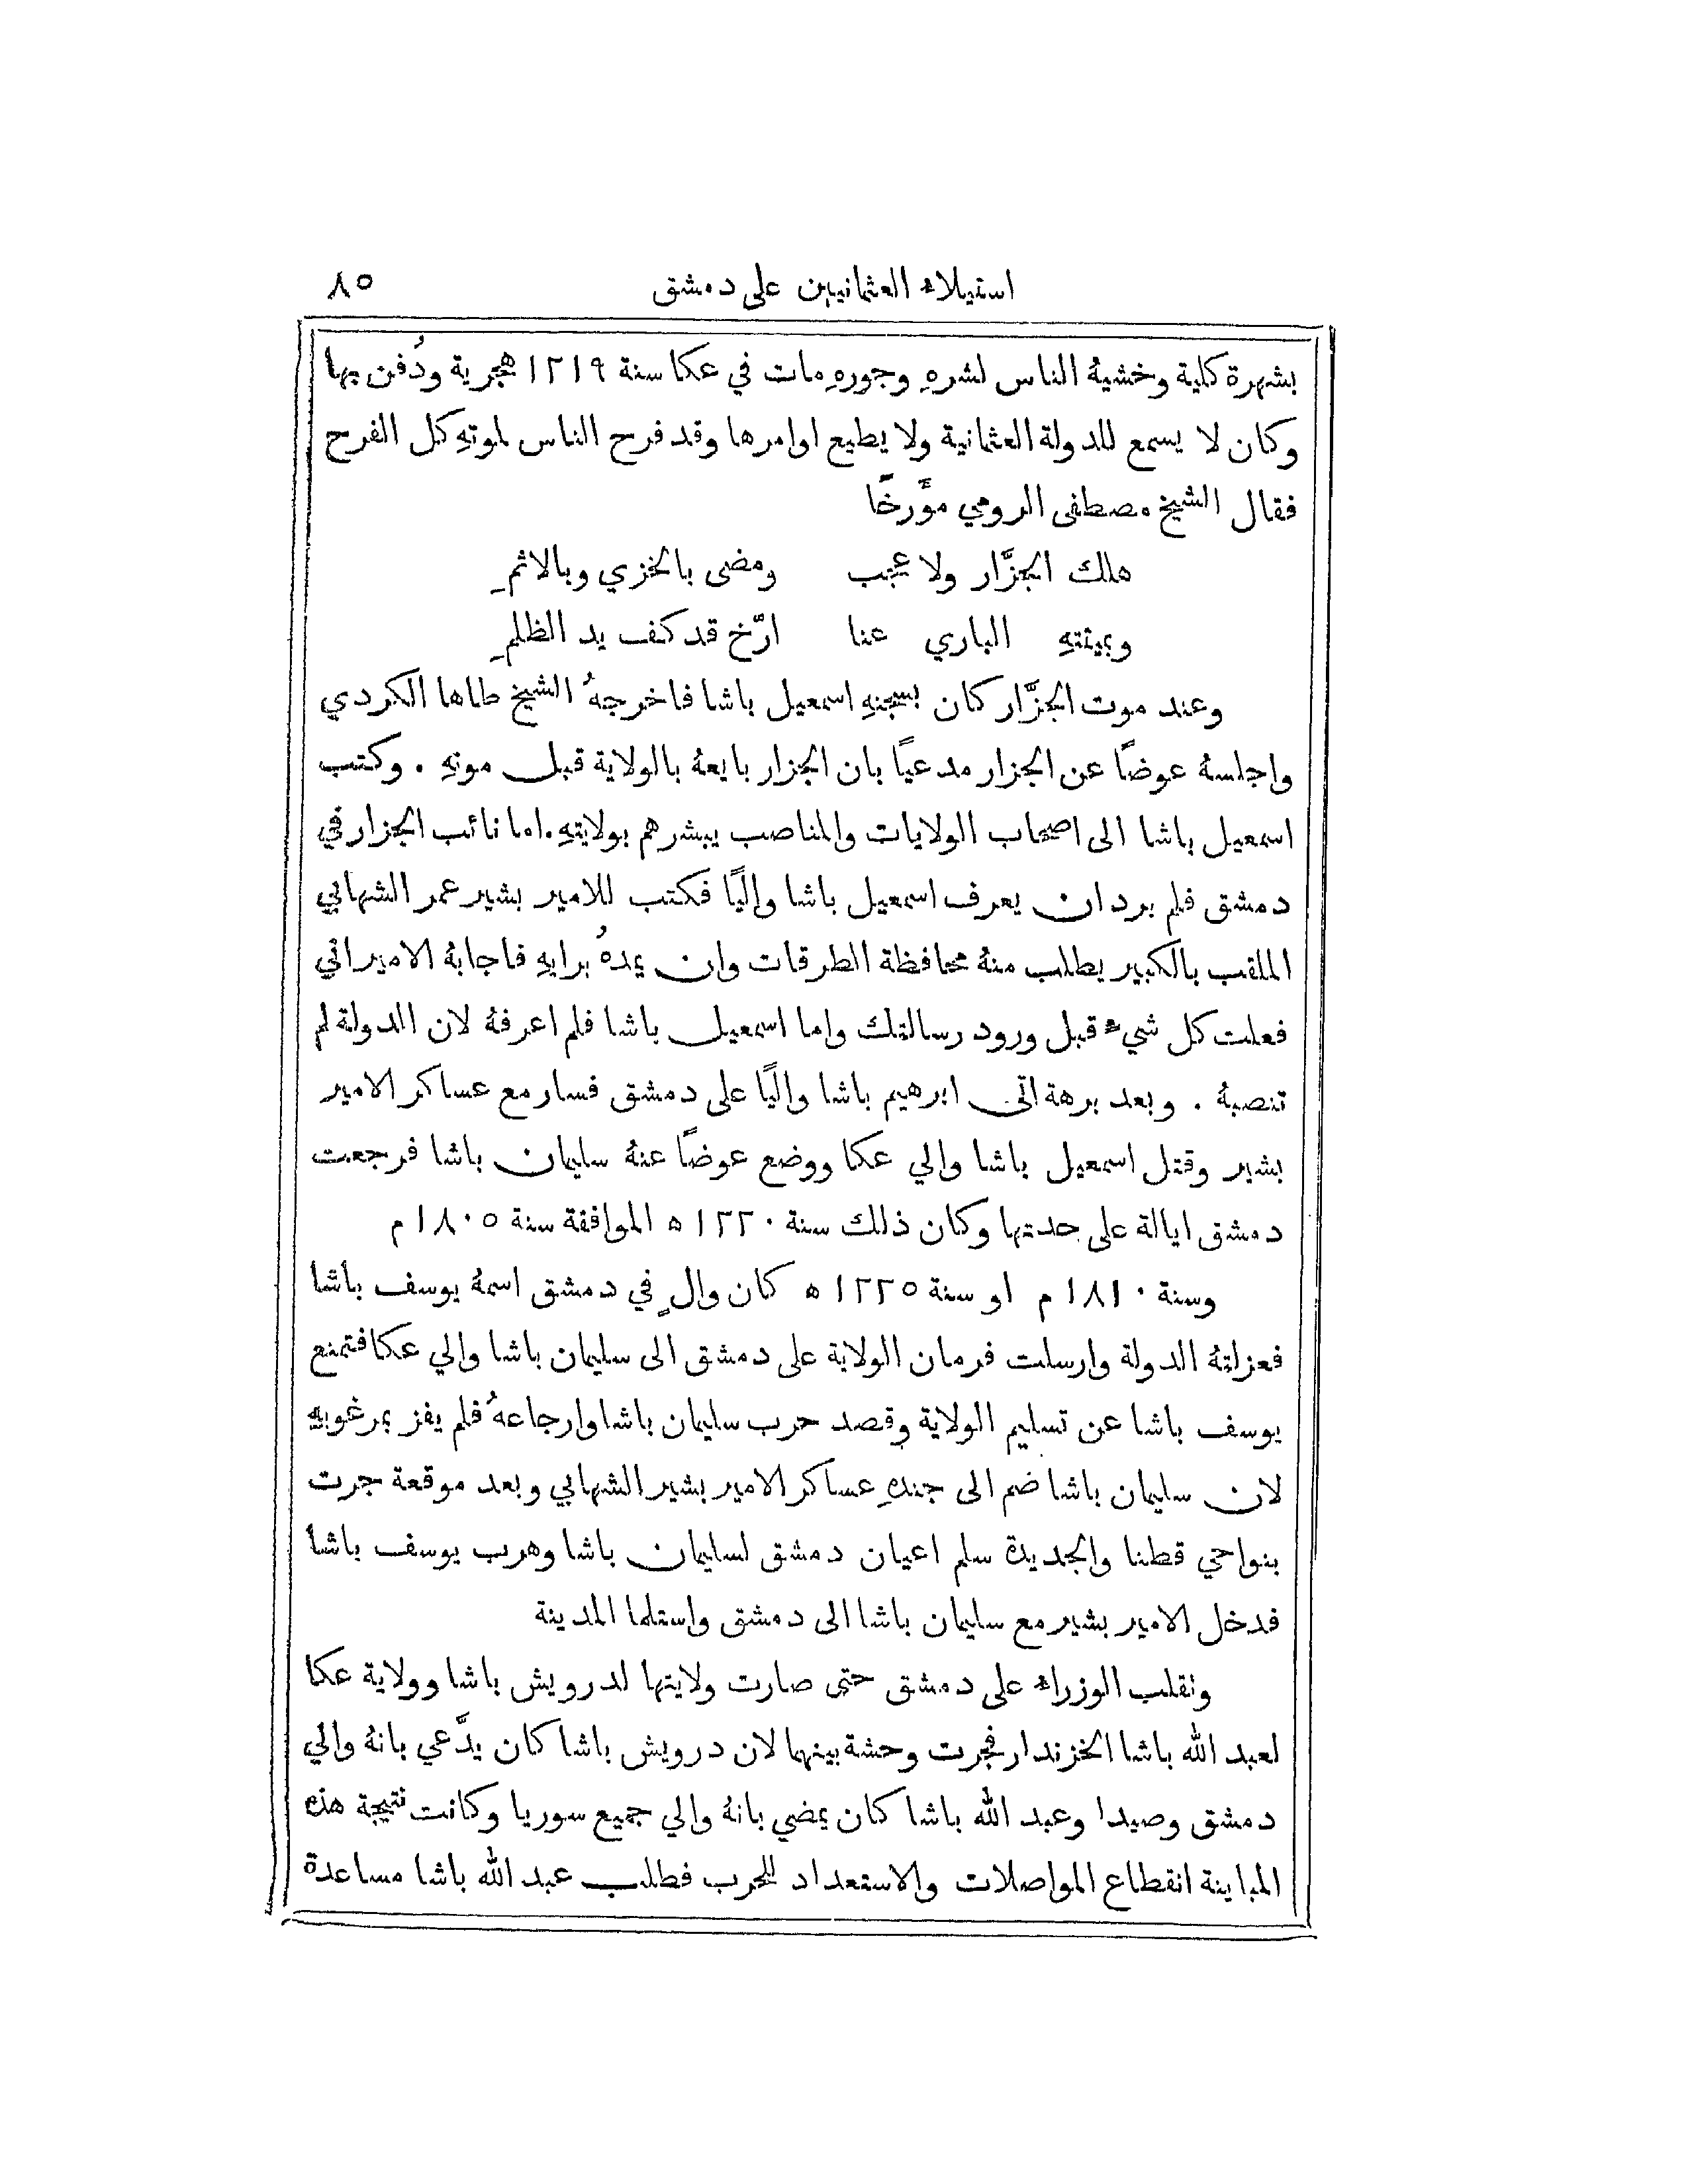 استيلاء العثمانيين على دمشق ٨٥
بشهرة كلية وخشيهُ الناس لشرهِ وجورهِ مات في عكا سنة ١٢١٩ هجرية ودُفن بها
وكان لا يسمع للدولة العثمانية ولا يطيع اوامرها وقد فرح الناس لموتهِ كل الفرح
فقال الشيخ مصطفى الرومي مؤَرخًا
هلك الجزَّار ولا عجب ومضى بالخزي وبالاثمِ
وبميتتهِ الباري عنا ارّخ قد كف يد الظلمِ
وعند موت الجزَّار كان بسجنهِ اسمعيل باشا فاخرجهُ الشيخ طاها الكردي
واجلسهُ عوضًا عن الجزار مدعيًا بان الجزار بايعهُ بالولاية قبل موتهِ . وكتب
اسمعيل باشا الى اصحاب الولايات والمناصب يبشرهم بولايتهِ . اما نائب الجزار في
دمشق فلم يرد ان يعرف اسمعيل باشا واليًا فكتب للامير بشير عمر الشهابي
الملقب بالكبير يطلب منهُ محافظة الطرقات وان يمدهُ برايهِ فاجابهُ الامير اني
فعلت كل شيء قبل ورود رسالتك واما اسمعيل باشا فلم اعرفهُ لان الدولة لم
تنصبهُ . وبعد برهة اتى ابرهيم باشا واليًا على دمشق فسار مع عساكر الامير
بشير وقتل اسمعيل باشا والي عكا ووضع عوضًا عنهُ سليمان باشا فرجعت
دمشق ايالة على حدتها وكان ذلك سنة ١٢٢٠ ه الموافقة سنة ١٨٠٥ م
وسنة ١٨١٠ م او سنة ١٢٢٥ ه كان والٍ في دمشق اسمهُ يوسف باشا
فعزلتهُ الدولة وارسلت فرمان الولاية على دمشق الى سليمان باشا والي عكا فتمنع
يوسف باشا عن تسليم الولاية وقصد حرب سليمان باشا وارجاعهُ فلم يفز بمرغوبهِ
لان سليمان باشا ضم الى جندهِ عساكر الامير بشير الشهابي وبعد موقعة جرت
بنواحي قطنا والجديدة سلم اعيان دمشق لسليمان باشا وهرب يوسف باشا
فدخل الامير بشير مع سليمان باشا الى دمشق واستلما المدينة
وتقلب الوزراء على دمشق حتى صارت ولايتها لدرويش باشا وولاية عكا
لعبد الله باشا الخزندار فجرت وحشة بينهما لان درويش باشا كان يدَّعي بانهُ والي
دمشق وصيدا وعبد الله باشا كان يمضي بانهُ والي جميع سوريا وكانت نتيجة هذه
المباينة انقطاع المواصلات والاستعداد للحرب فطلب عبد الله باشا مساعدة